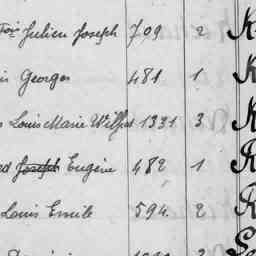 Fois Julien Joseph 709 2 K
is Georges 481 1 K
s Louis Marie Wilfrid 1331 3 K
ed Joseph Eugène 482 1 R
Louis Emile 594. 2 R